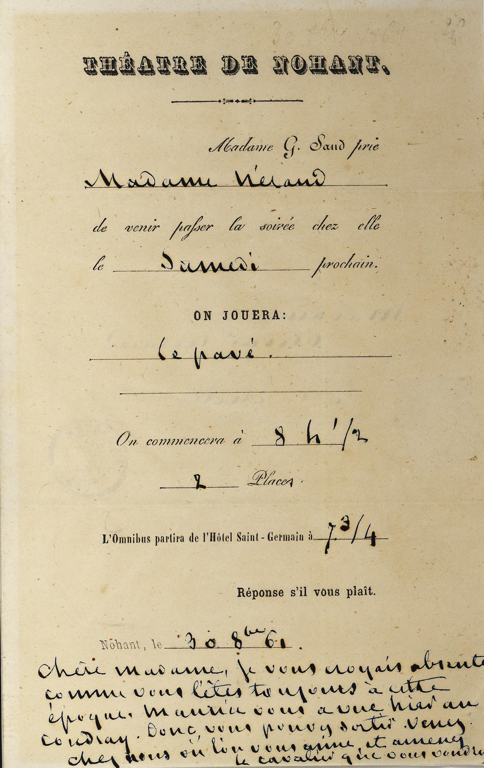 THÉATRE DE NOHANT.
Madame G. Sand prie
Madame Néraud
de venir passer la soirée chez elle
le Samedi prochain.
ON JOUERA:
le pavé.
On commencera à 8 h 1/2
2 Places
L'Omnibus partira de l'Hôtel Saint-Germain à 7 3/4
Réponse s'il vous plaît.
Nôhant, le 30 8bre 61.
Chère madame, je vous croyais absente
comme vous l'êtes toujours à cette
époque. Maurice vous a vue hier au
Coudray. Donc vous pouvez sortir. Venez
chez nous où l'on vous aime, et amenez
le cavalier que vous voudrez